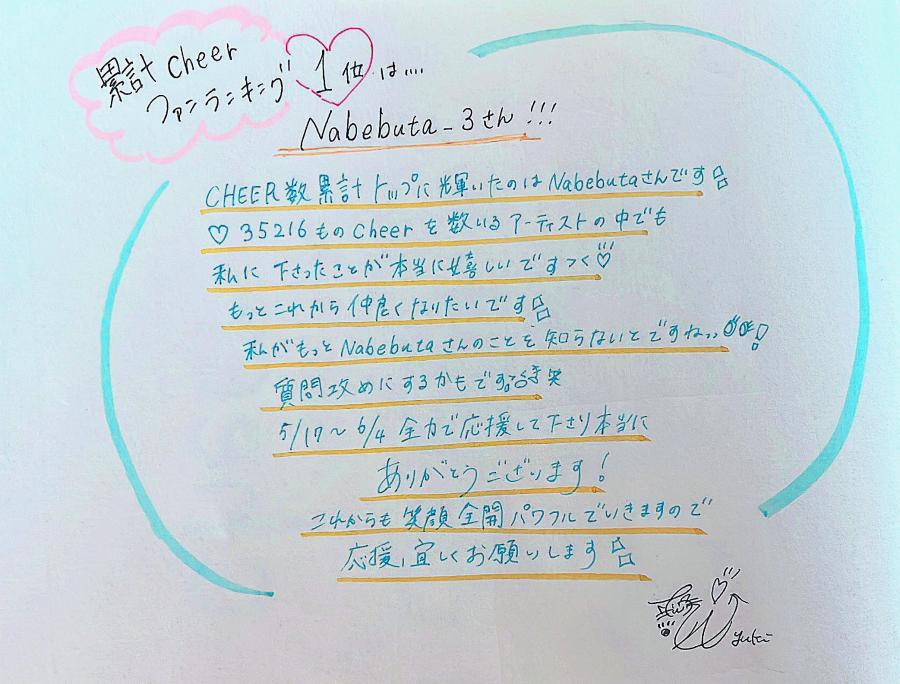 累計 cheer
ファンランキング 1位は....
Nabebuta_3さん!!!
CHEER数累計トップに輝いたのはNabebutaさんです
♡35216ものcheerを数いるアーティストの中でも
私に下さったことが本当に嬉しいですっく♡
もっとこれから仲良くなりたいです
私がもっとNabebutaさんのことを知らないとですねっ!
質問攻めにするかもです 笑
5/17~6/4 全力で応援して下さり本当に
ありがとうございます!
これからも笑顔全開パワフルでいきますので
応援、宜しくお願いします
yuki